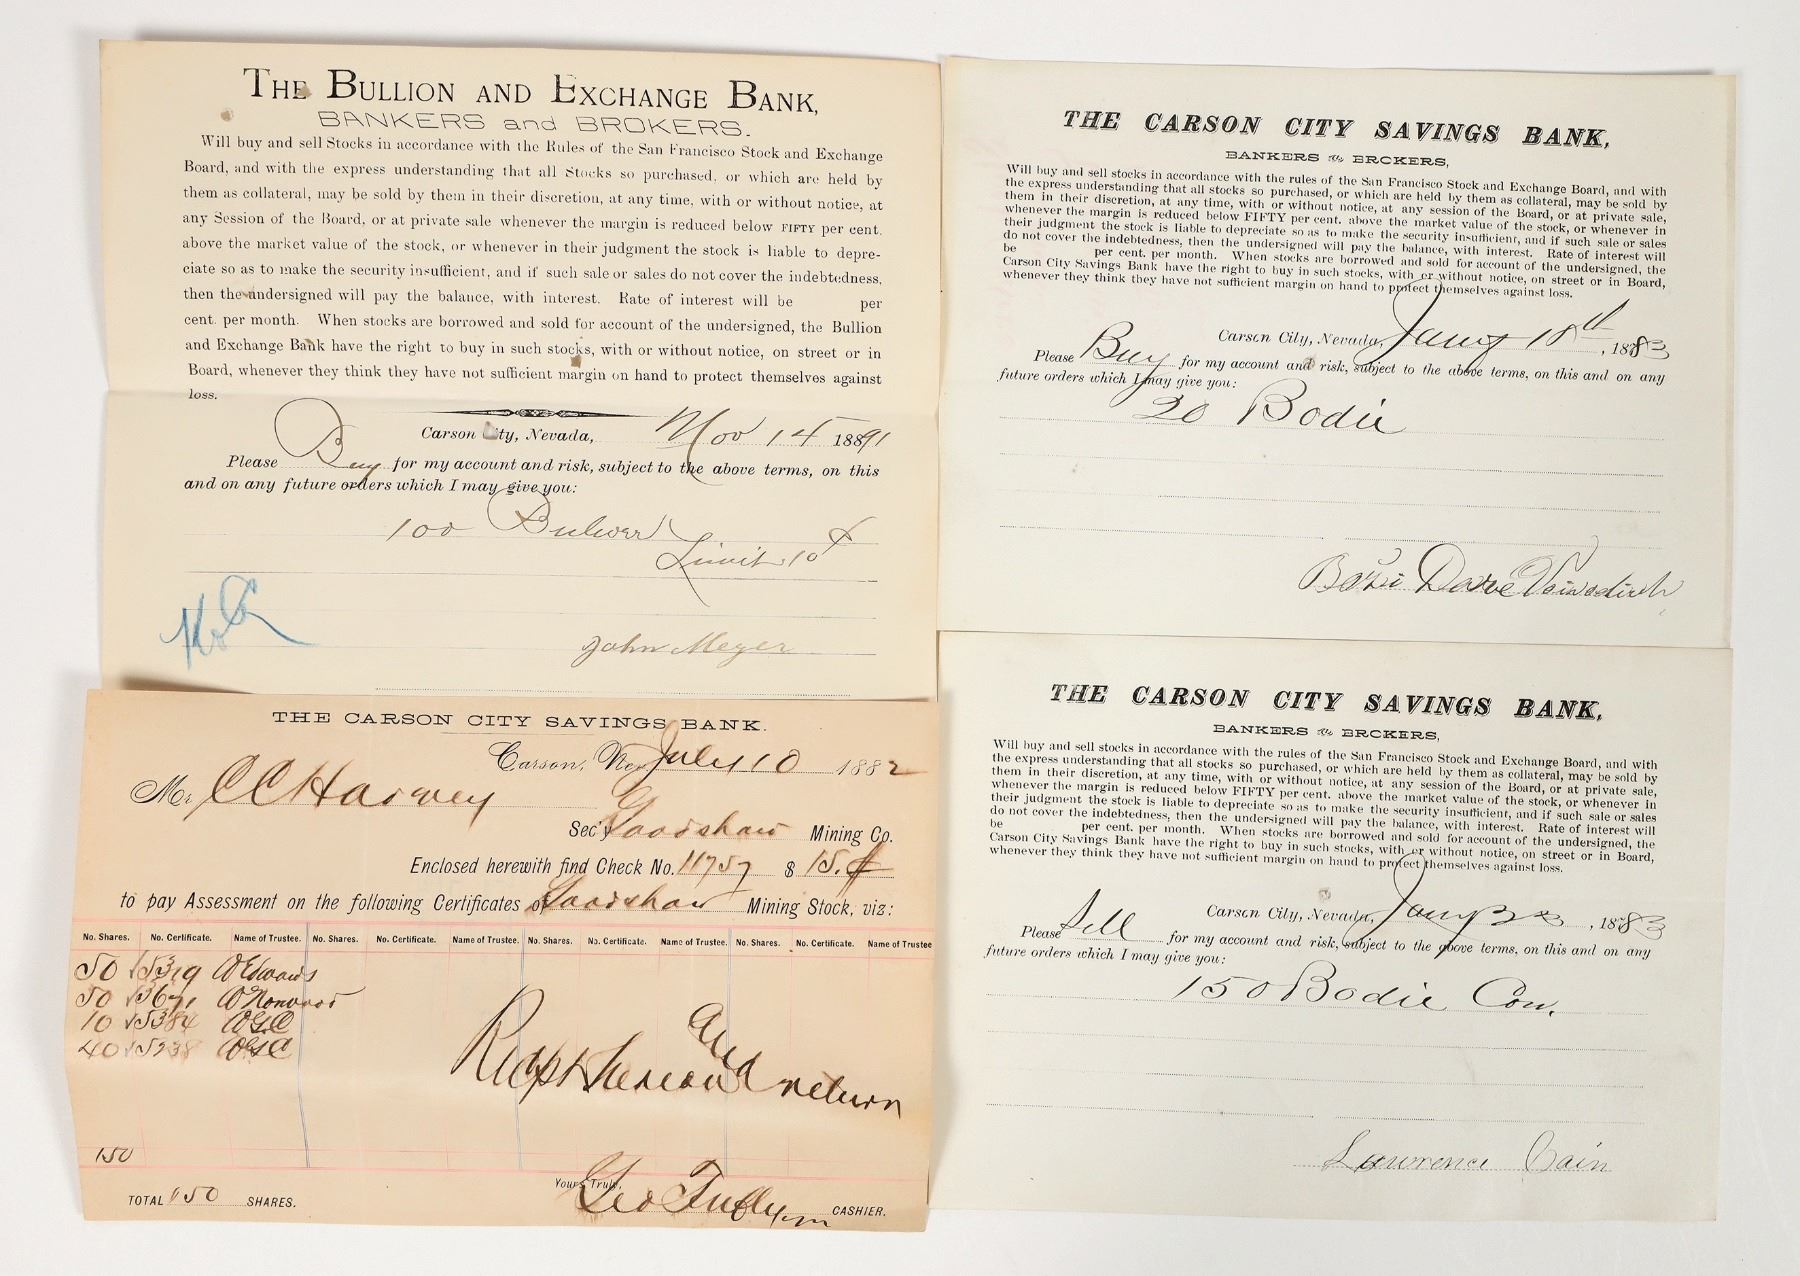 THE BULLION AND EXCHANGE BANK,
BANKERS and BROKERS.
Will buy and sell Stocks in accordance with the Rules of the San Francisco Stock and Exchange
Board, and with the express understanding that all Stocks so purchased, or which are held by
them as collateral, may be sold by them in their discretion, at any time, with or without notice, at
any Session of the Board, or at private sale whenever the margin is reduced below FIFTY per cent.
above the market value of the stock, or whenever in their judgment the stock is liable to depre-
ciate so as to make the security insufficient, and if such sale or sales do not cover the indebtedness,
then the undersigned will pay the balance, with interest. Rate of interest will be per
cent. per month. When stocks are borrowed and sold for account of the undersigned, the Bullion
and Exchange Bank have the right to buy in such stocks, with or without notice, on street or in
Board, whenever they think they have not sufficient margin on hand to protect themselves against
loss.
Carson City, Nevada, Nov 14 1891
Please Buy for my account and risk, subject to the above terms, on this
and on any future orders which I may give you:
100 Bulwer
Limit 10
John Meyer
THE CARSON CITY SAVINGS BANK.
Carson, Nev July 10 1882
Mr C C Harvey
Sec'y Goodshaw Mining Co.
Enclosed herewith find Check No. 11757 $ 15.
to pay Assessment on the following Certificates of Goodshaw Mining Stock, viz:
No. Shares. No. Certificate. Name of Trustee. No. Shares. No. Certificate. Name of Trustee. No. Shares. No. Certificate. Name of Trustee. No. Shares. No. Certificate. Name of Trustee
50 15319 W Edwards
50 13671
10 15384
40 15238
and
return
150
Yours Truly,
TOTAL 150 SHARES.
Geo CASHIER.
THE CARSON CITY SAVINGS BANK,
BANKERS and BROKERS,
Will buy and sell stocks in accordance with the rules of the San Francisco Stock and Exchange Board, and with
the express understanding that all stocks so purchased, or which are held by them as collateral, may be sold by
them in their discretion, at any time, with or without notice, at any session of the Board, or at private sale,
whenever the margin is reduced below FIFTY per cent. above the market value of the stock, or whenever in
their judgment the stock is liable to depreciate so as to make the security insufficient, and if such sale or sales
do not cover the indebtedness, then the undersigned will pay the balance, with interest. Rate of interest will
be per cent. per month. When stocks are borrowed and sold for account of the undersigned, the
Carson City Savings Bank have the right to buy in such stocks, with or without notice, on street or in Board,
whenever they think they have not sufficient margin on hand to protect themselves against loss.
Carson City, Nevada, Jany 18th, 1883
Please Buy for my account and risk, subject to the above terms, on this and on any
future orders which I may give you:
20 Bodie
THE CARSON CITY SAVINGS BANK,
BANKERS and BROKERS,
Will buy and sell stocks in accordance with the rules of the San Francisco Stock and Exchange Board, and with
the express understanding that all stocks so purchased, or which are held by them as collateral, may be sold by
them in their discretion, at any time, with or without notice, at any session of the Board, or at private sale,
whenever the margin is reduced below FIFTY per cent. above the market value of the stock, or whenever in
their judgment the stock is liable to depreciate so as to make the security insufficient, and if such sale or sales
do not cover the indebtedness, then the undersigned will pay the balance, with interest. Rate of interest will
be per cent. per month. When stocks are borrowed and sold for account of the undersigned, the
Carson City Savings Bank have the right to buy in such stocks, with or without notice, on street or in Board,
whenever they think they have not sufficient margin on hand to protect themselves against loss.
Carson City, Nevada, Jany , 1883
Please Sell for my account and risk, subject to the above terms, on this and on any
future orders which I may give you:
150 Bodie Con.
Lawrence Cain